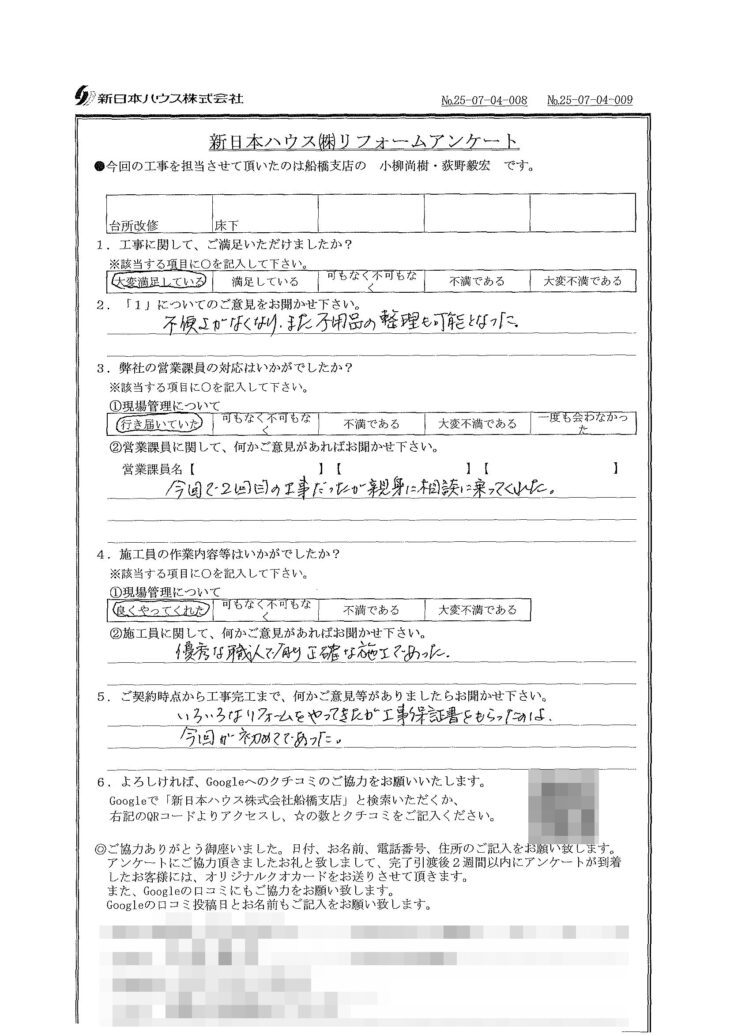 新日本ハウス株式会社
№25-07-04-008 №25-07-04-009
新日本ハウス㈱リフォームアンケート
●今回の工事を担当させて頂いたのは船橋支店の 小柳尚樹・荻野毅宏 です。
台所改修 床下
1．工事に関して、ご満足いただけましたか？
※該当する項目に○を記入して下さい。
大変満足している 満足している 可もなく不可もなく 不満である 大変不満である
2．「1」についてのご意見をお聞かせ下さい。
不便さがなくなり、また不用品の整理も可能となった。
3．弊社の営業課員の対応はいかがでしたか？
※該当する項目に○を記入して下さい。
①現場管理について
行き届いていた 可もなく不可もなく 不満である 大変不満である 一度も会わなかった
②営業課員に関して、何かご意見があればお聞かせ下さい。
営業課員名【 】【 】【 】
今回で2回目の工事だったが親身に相談に乗ってくれた。
4．施工員の作業内容等はいかがでしたか？
※該当する項目に○を記入して下さい。
①現場管理について
良くやってくれた 可もなく不可もなく 不満である 大変不満である
②施工員に関して、何かご意見があればお聞かせ下さい。
優秀な職人であり正確な施工であった。
5．ご契約時点から工事完工まで、何かご意見等がありましたらお聞かせ下さい。
いろいろなリフォームをやってきたが工事保証書をもらったのは、
今回が初めてであった。
6．よろしければ、Googleへのクチコミのご協力をお願いいたします。
Googleで「新日本ハウス株式会社船橋支店」と検索いただくか、
右記のQRコードよりアクセスし、☆の数とクチコミをご記入ください。
◎ご協力ありがとう御座いました。日付、お名前、電話番号、住所のご記入をお願い致します。
アンケートにご協力頂きましたお礼と致しまして、完了引渡後2週間以内にアンケートが到着
したお客様には、オリジナルクオカードをお送りさせて頂きます。
また、Googleの口コミにもご協力をお願い致します。
Googleの口コミ投稿日とお名前もご記入をお願い致します。